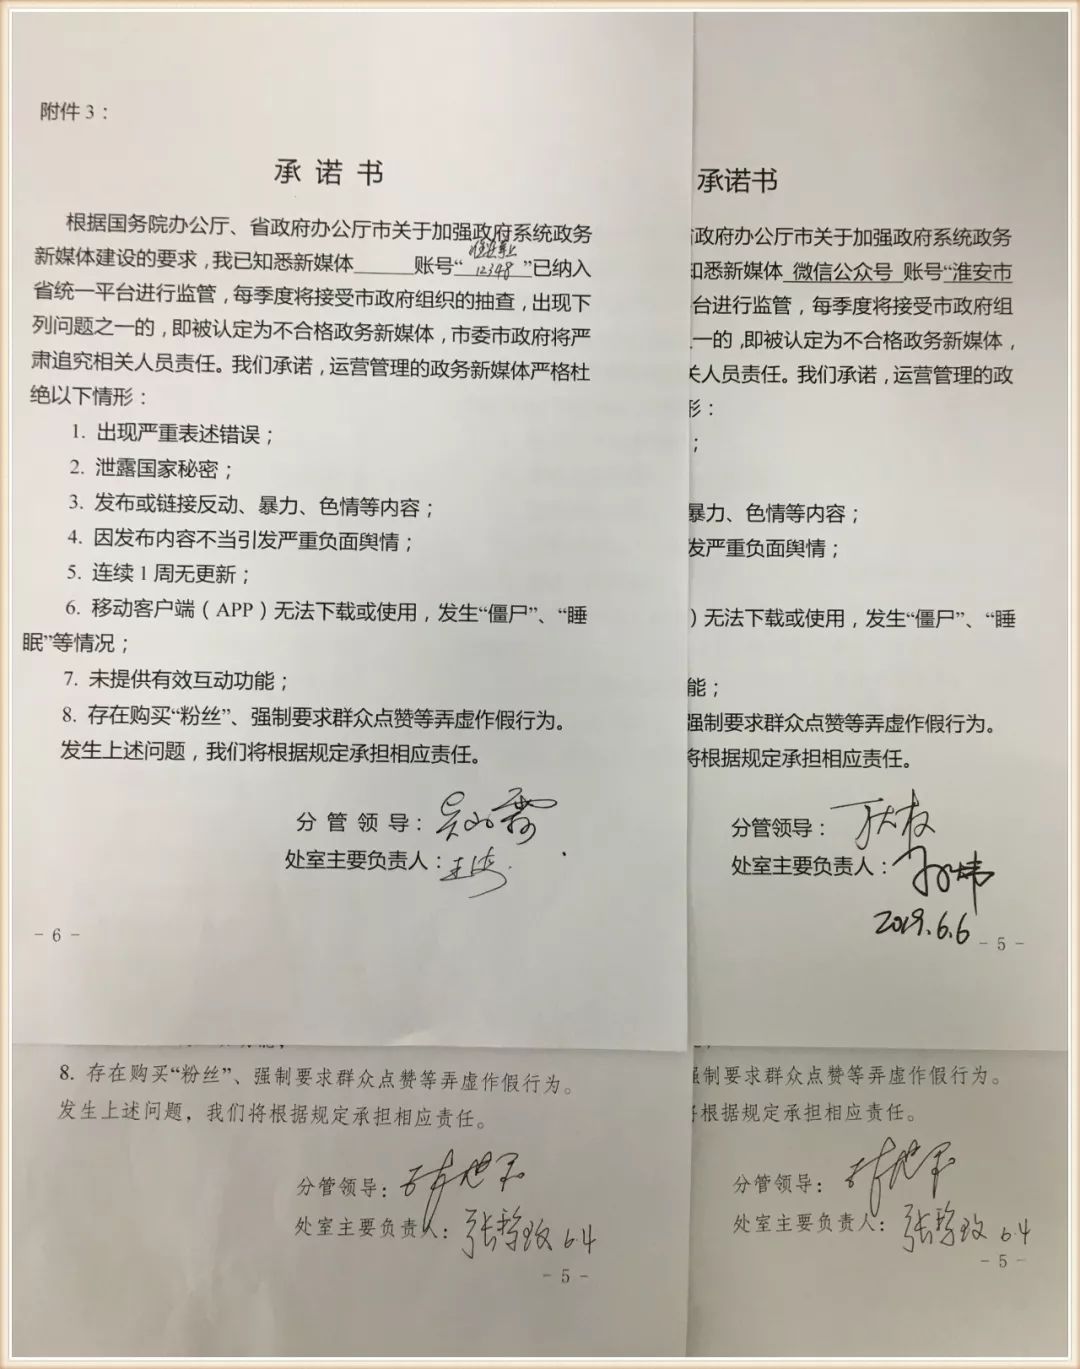 附件 3：
承 诺 书
根据国务院办公厅、省政府办公厅市关于加强政府系统政务
新媒体建设的要求，我已知悉新媒体______账号“12348”已纳入
省统一平台进行监管，每季度将接受市政府组织的抽查，出现下
列问题之一的，即被认定为不合格政务新媒体，市委市政府将严
肃追究相关人员责任。我们承诺，运营管理的政务新媒体严格杜
绝以下情形：
1. 出现严重表述错误；
2. 泄露国家秘密；
3. 发布或链接反动、暴力、色情等内容；
4. 因发布内容不当引发严重负面舆情；
5. 连续 1 周无更新；
6. 移动客户端（APP）无法下载或使用，发生“僵尸”、“睡
眠”等情况；
7. 未提供有效互动功能；
8. 存在购买“粉丝”、强制要求群众点赞等弄虚作假行为。
发生上述问题，我们将根据规定承担相应责任。
分 管 领 导：
处室主要负责人：王海
- 6 -
承诺书
省政府办公厅市关于加强政府系统政务
知悉新媒体 微信公众号 账号“淮安市
台进行监管，每季度将接受市政府组
一的，即被认定为不合格政务新媒体，
关人员责任。我们承诺，运营管理的政
形：
；
暴力、色情等内容；
发严重负面舆情；
）无法下载或使用，发生“僵尸”、“睡
能；
强制要求群众点赞等弄虚作假行为。
将根据规定承担相应责任。
分管领导：
处室主要负责人：
2019.6.6
- 5 -
8. 存在购买“粉丝”、强制要求群众点赞等弄虚作假行为。
发生上述问题，我们将根据规定承担相应责任。
分管领导：
处室主要负责人：张 6.4
- 5 -
强制要求群众点赞等弄虚作假行为。
将根据规定承担相应责任。
分管领导：
处室主要负责人：张 6.4
- 5 -